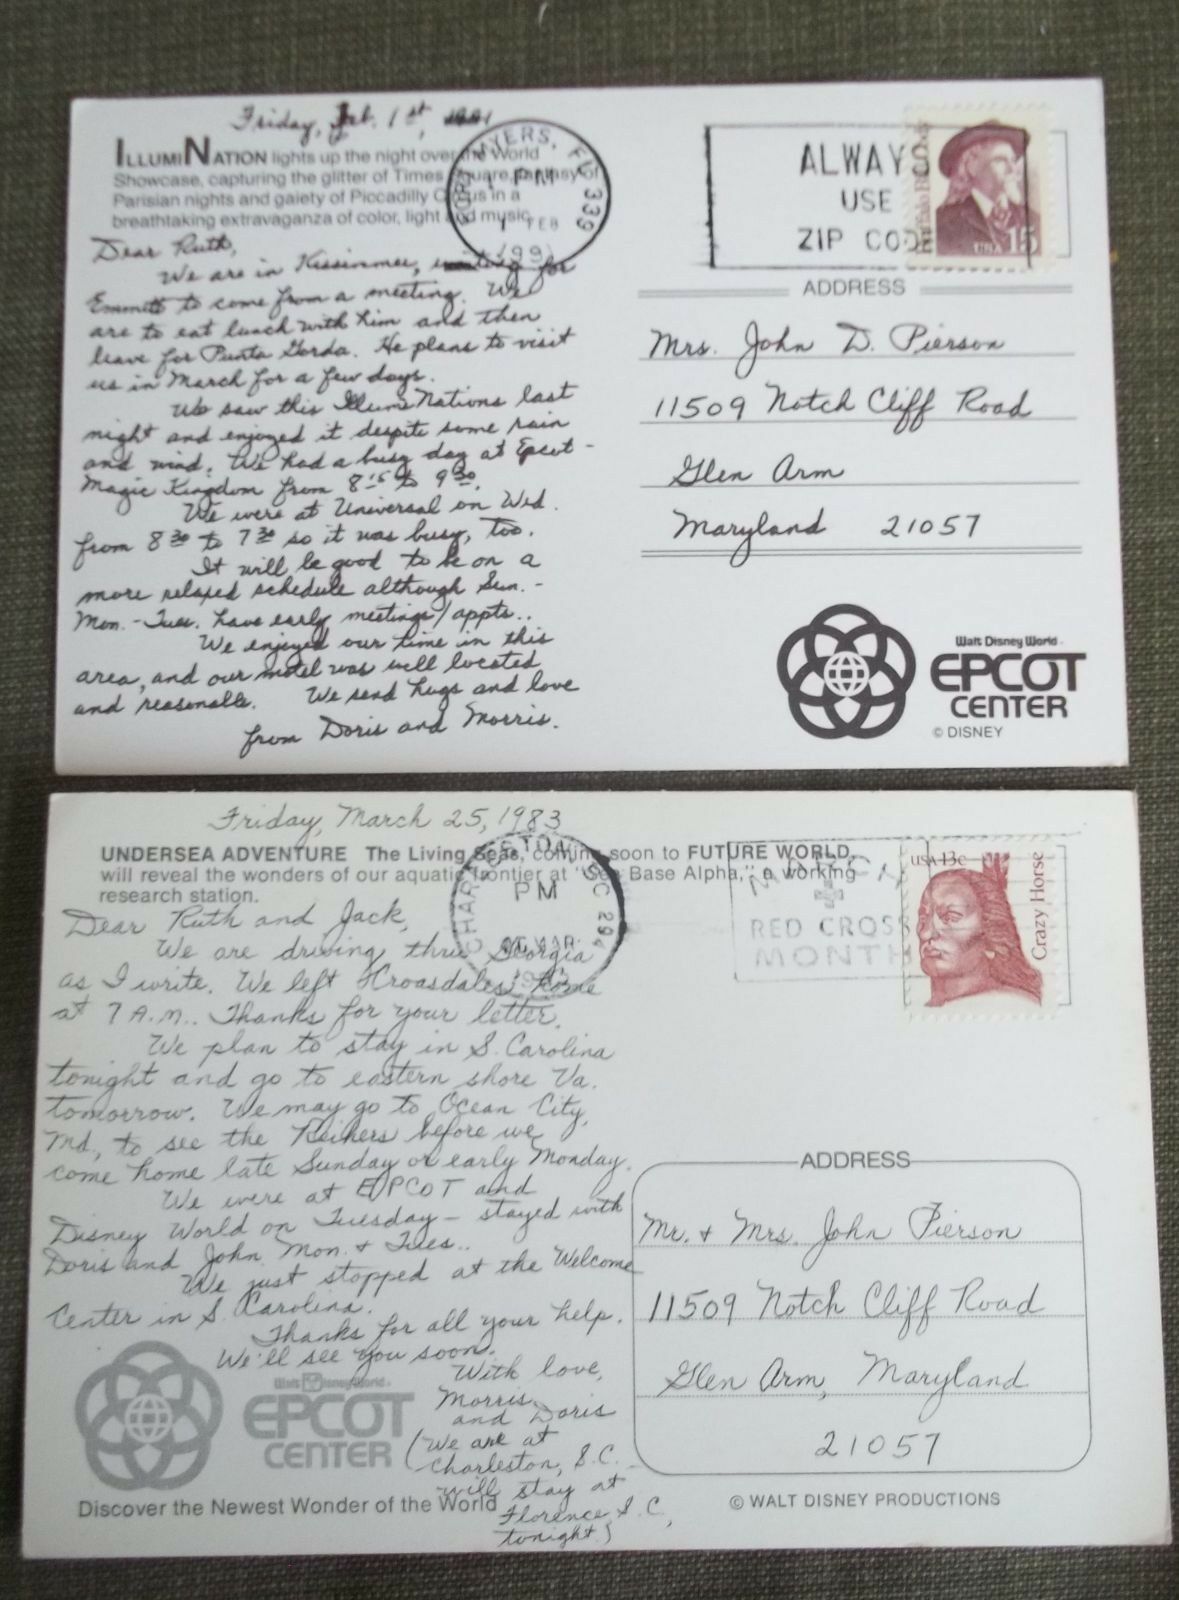 Friday, Feb. 1st, 1991
ILLUMINATION lights up the night over the World
Showcase, capturing the glitter of Times Square, fantasy of
Parisian nights and gaiety of Piccadilly Circus in a
breathtaking extravaganza of color, light and music.
FORT MYERS, FL 339
PM
1 FEB
1991
ALWAYS
USE
ZIP CODE
Buffalo Bill Cody
USA 15
Dear Ruth,
We are in Kissimmee, waiting for
Emmett to come from a meeting. We
are to eat lunch with him and then
leave for Punta Gorda. He plans to visit
us in March for a few days.
We saw this IllumiNations last
night and enjoyed it despite some rain
and wind. We had a busy day at Epcot -
Magic Kingdom from 8 15 to 9 30.
We were at Universal on Wed.
from 8 30 to 7 30 so it was busy, too.
It will be good to be on a
more relaxed schedule although Sun. -
Mon. - Tues. have early meetings/appts..
We enjoyed our time in this
area, and our motel was well located
and reasonable. We send hugs and love
from Doris and Morris.
ADDRESS
Mrs. John D. Pierson
11509 Notch Cliff Road
Glen Arm
Maryland 21057
Walt Disney World
EPCOT
CENTER
© DISNEY
Friday, March 25, 1983
UNDERSEA ADVENTURE The Living Seas, coming soon to FUTURE WORLD,
will reveal the wonders of our aquatic frontier at "Sea Base Alpha," a working
research station.
CHARLESTON, SC 294
PM
MAR
1983
MARCH
RED CROSS
MONTH
USA 13c
Crazy Horse
Dear Ruth and Jack,
We are driving thru Georgia
as I write. We left Croasdales' home
at 7 A.M.. Thanks for your letter.
We plan to stay in S. Carolina
tonight and go to eastern shore Va.
tomorrow. We may go to Ocean City,
Md., to see the before we
come home late Sunday or early Monday.
We were at EPCOT and
Disney World on Tuesday - stayed with
Doris and John Mon. + Tues..
We just stopped at the Welcome
Center in S. Carolina.
Thanks for all your help.
We'll see you soon.
With love,
Morris
and Doris
(We are at
Charleston, S.C. -
will stay at
Florence S.C,
tonight.)
ADDRESS
Mr. + Mrs. John Pierson
11509 Notch Cliff Road
Glen Arm, Maryland
21057
Walt Disney World
EPCOT
CENTER
Discover the Newest Wonder of the World
© WALT DISNEY PRODUCTIONS